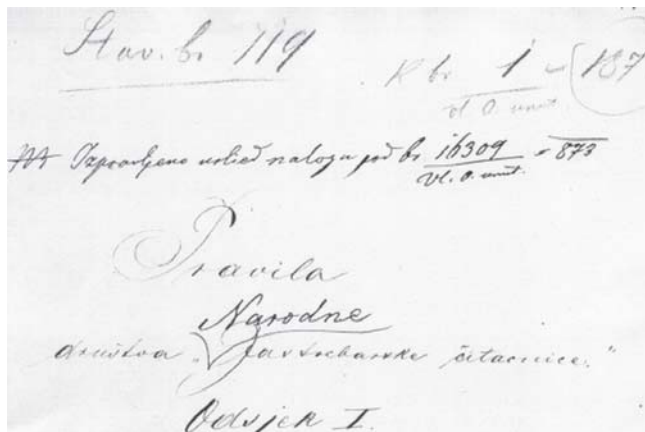 Stav. br. 119
K br. 1 - 187
vl. O. unut.
Izpravljeno uslied naloga pod br. 16309 - 873
Vl. O. unut.
Pravila
Narodne
društva „Jastrebarske čitaonice.“
Odsjek I.